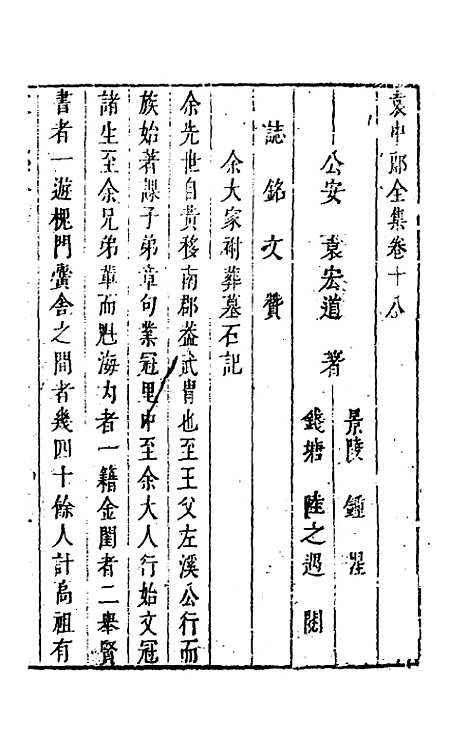 袁中郎全集卷十八
景陵 鍾 惺
公安 袁宏道 著
錢塘 陸之遇 閱
誌銘文贊
余大家祔葬墓石記
余先世自黃移南郡葢武胄也至王父左溪公行而
族始著課子弟章句業冠里中至余大人行始文冠
諸生至余兄弟輩而魁海內者一籍金閨者二舉賢
書者一遊槐門黌舍之間者幾四十餘人計高祖有